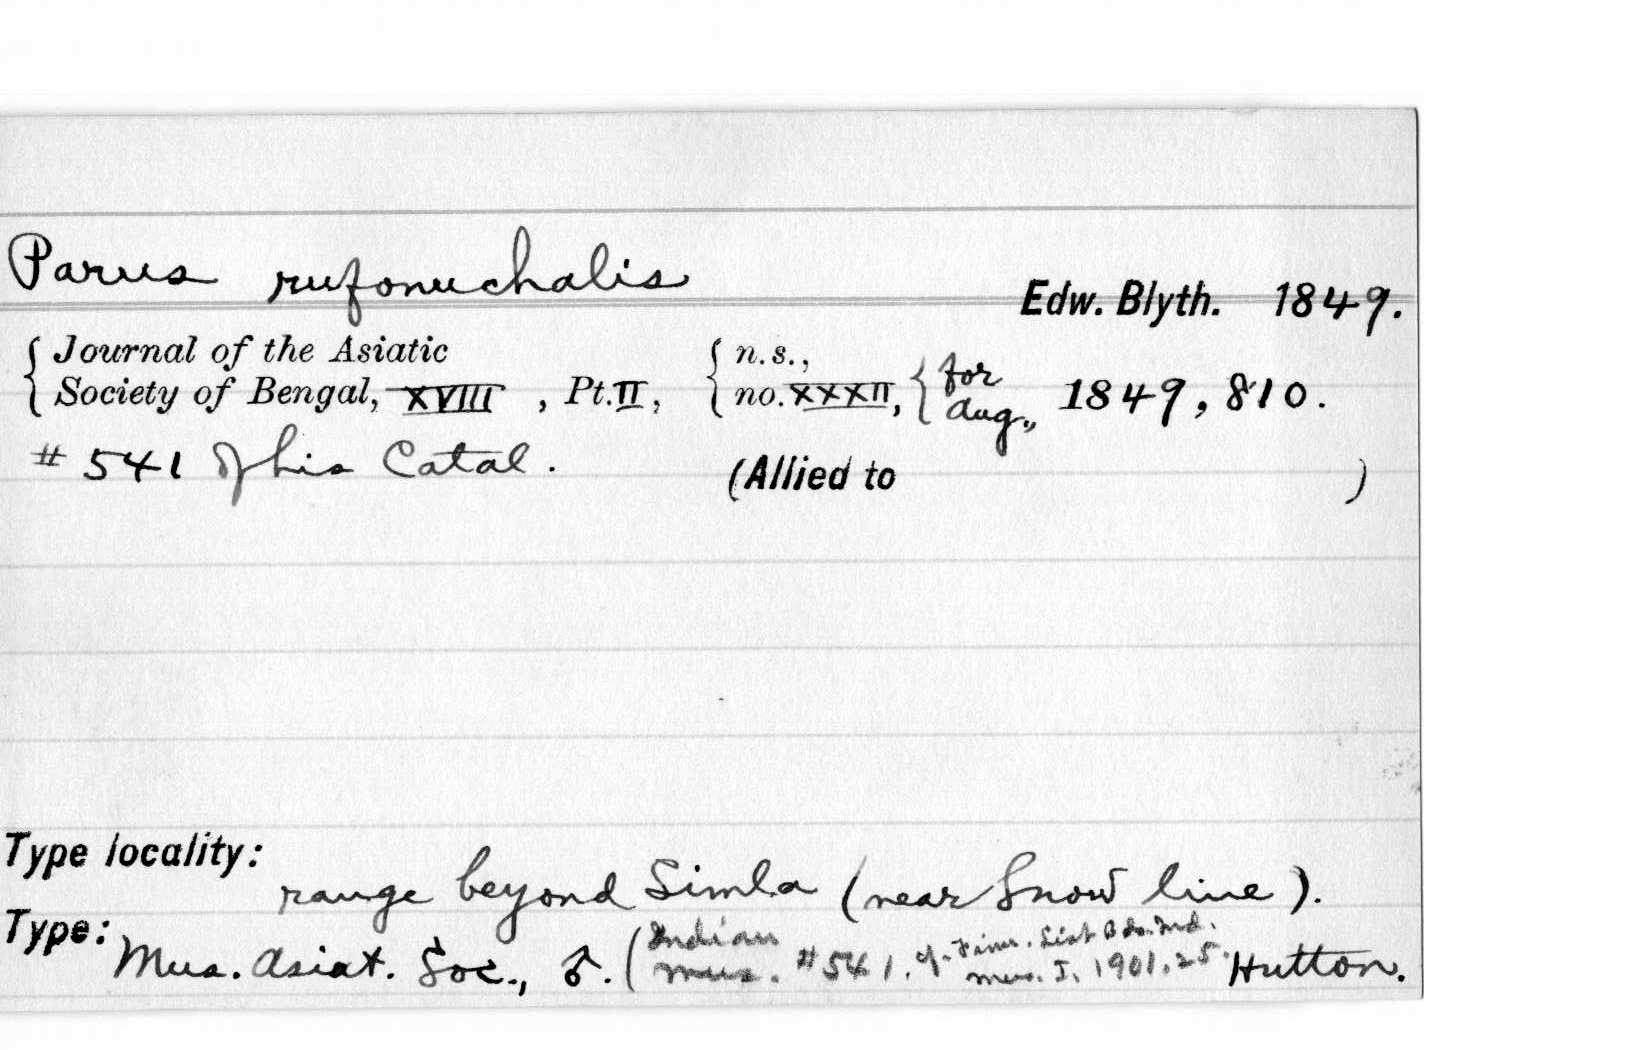 Parus rufonuchalis
Edw. Blyth. 1849.
{Journal of the Asiatic {n.s., {for
Society of Bengal, XVIII, Pt. II, no. XXXII, Aug., 1849, 810.
# 541 of his Catal. (Allied to )
Type locality:
range beyond Simla (near Snow line).
Type:
Mus. Asiat. Soc., ♂. (Indian Mus. #541. cf. Finn. List Bds. Ind. Mus. I, 1901, 25. Hutton.